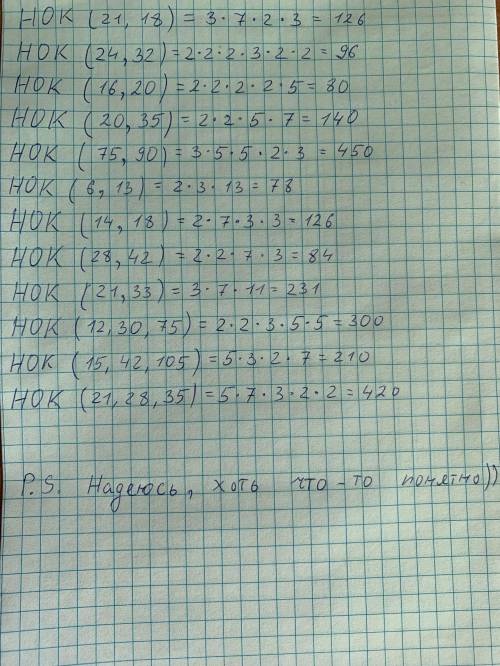 НОК (21, 18) = 3·7·2·3 = 126
НОК (24, 32) = 2·2·2·3·2·2 = 96
НОК (16, 20) = 2·2·2·2·5 = 80
НОК (20, 35) = 2·2·5·7 = 140
НОК (75, 90) = 3·5·5·2·3 = 450
НОК (6, 13) = 2·3·13 = 78
НОК (14, 18) = 2·7·3·3 = 126
НОК (28, 42) = 2·2·7·3 = 84
НОК (21, 33) = 3·7·11 = 231
НОК (12, 30, 75) = 2·2·3·5·5 = 300
НОК (15, 42, 105) = 5·3·2·7 = 210
НОК (21, 28, 35) = 5·7·3·2·2 = 420
P.S. Надеюсь, хоть что-то понятно))